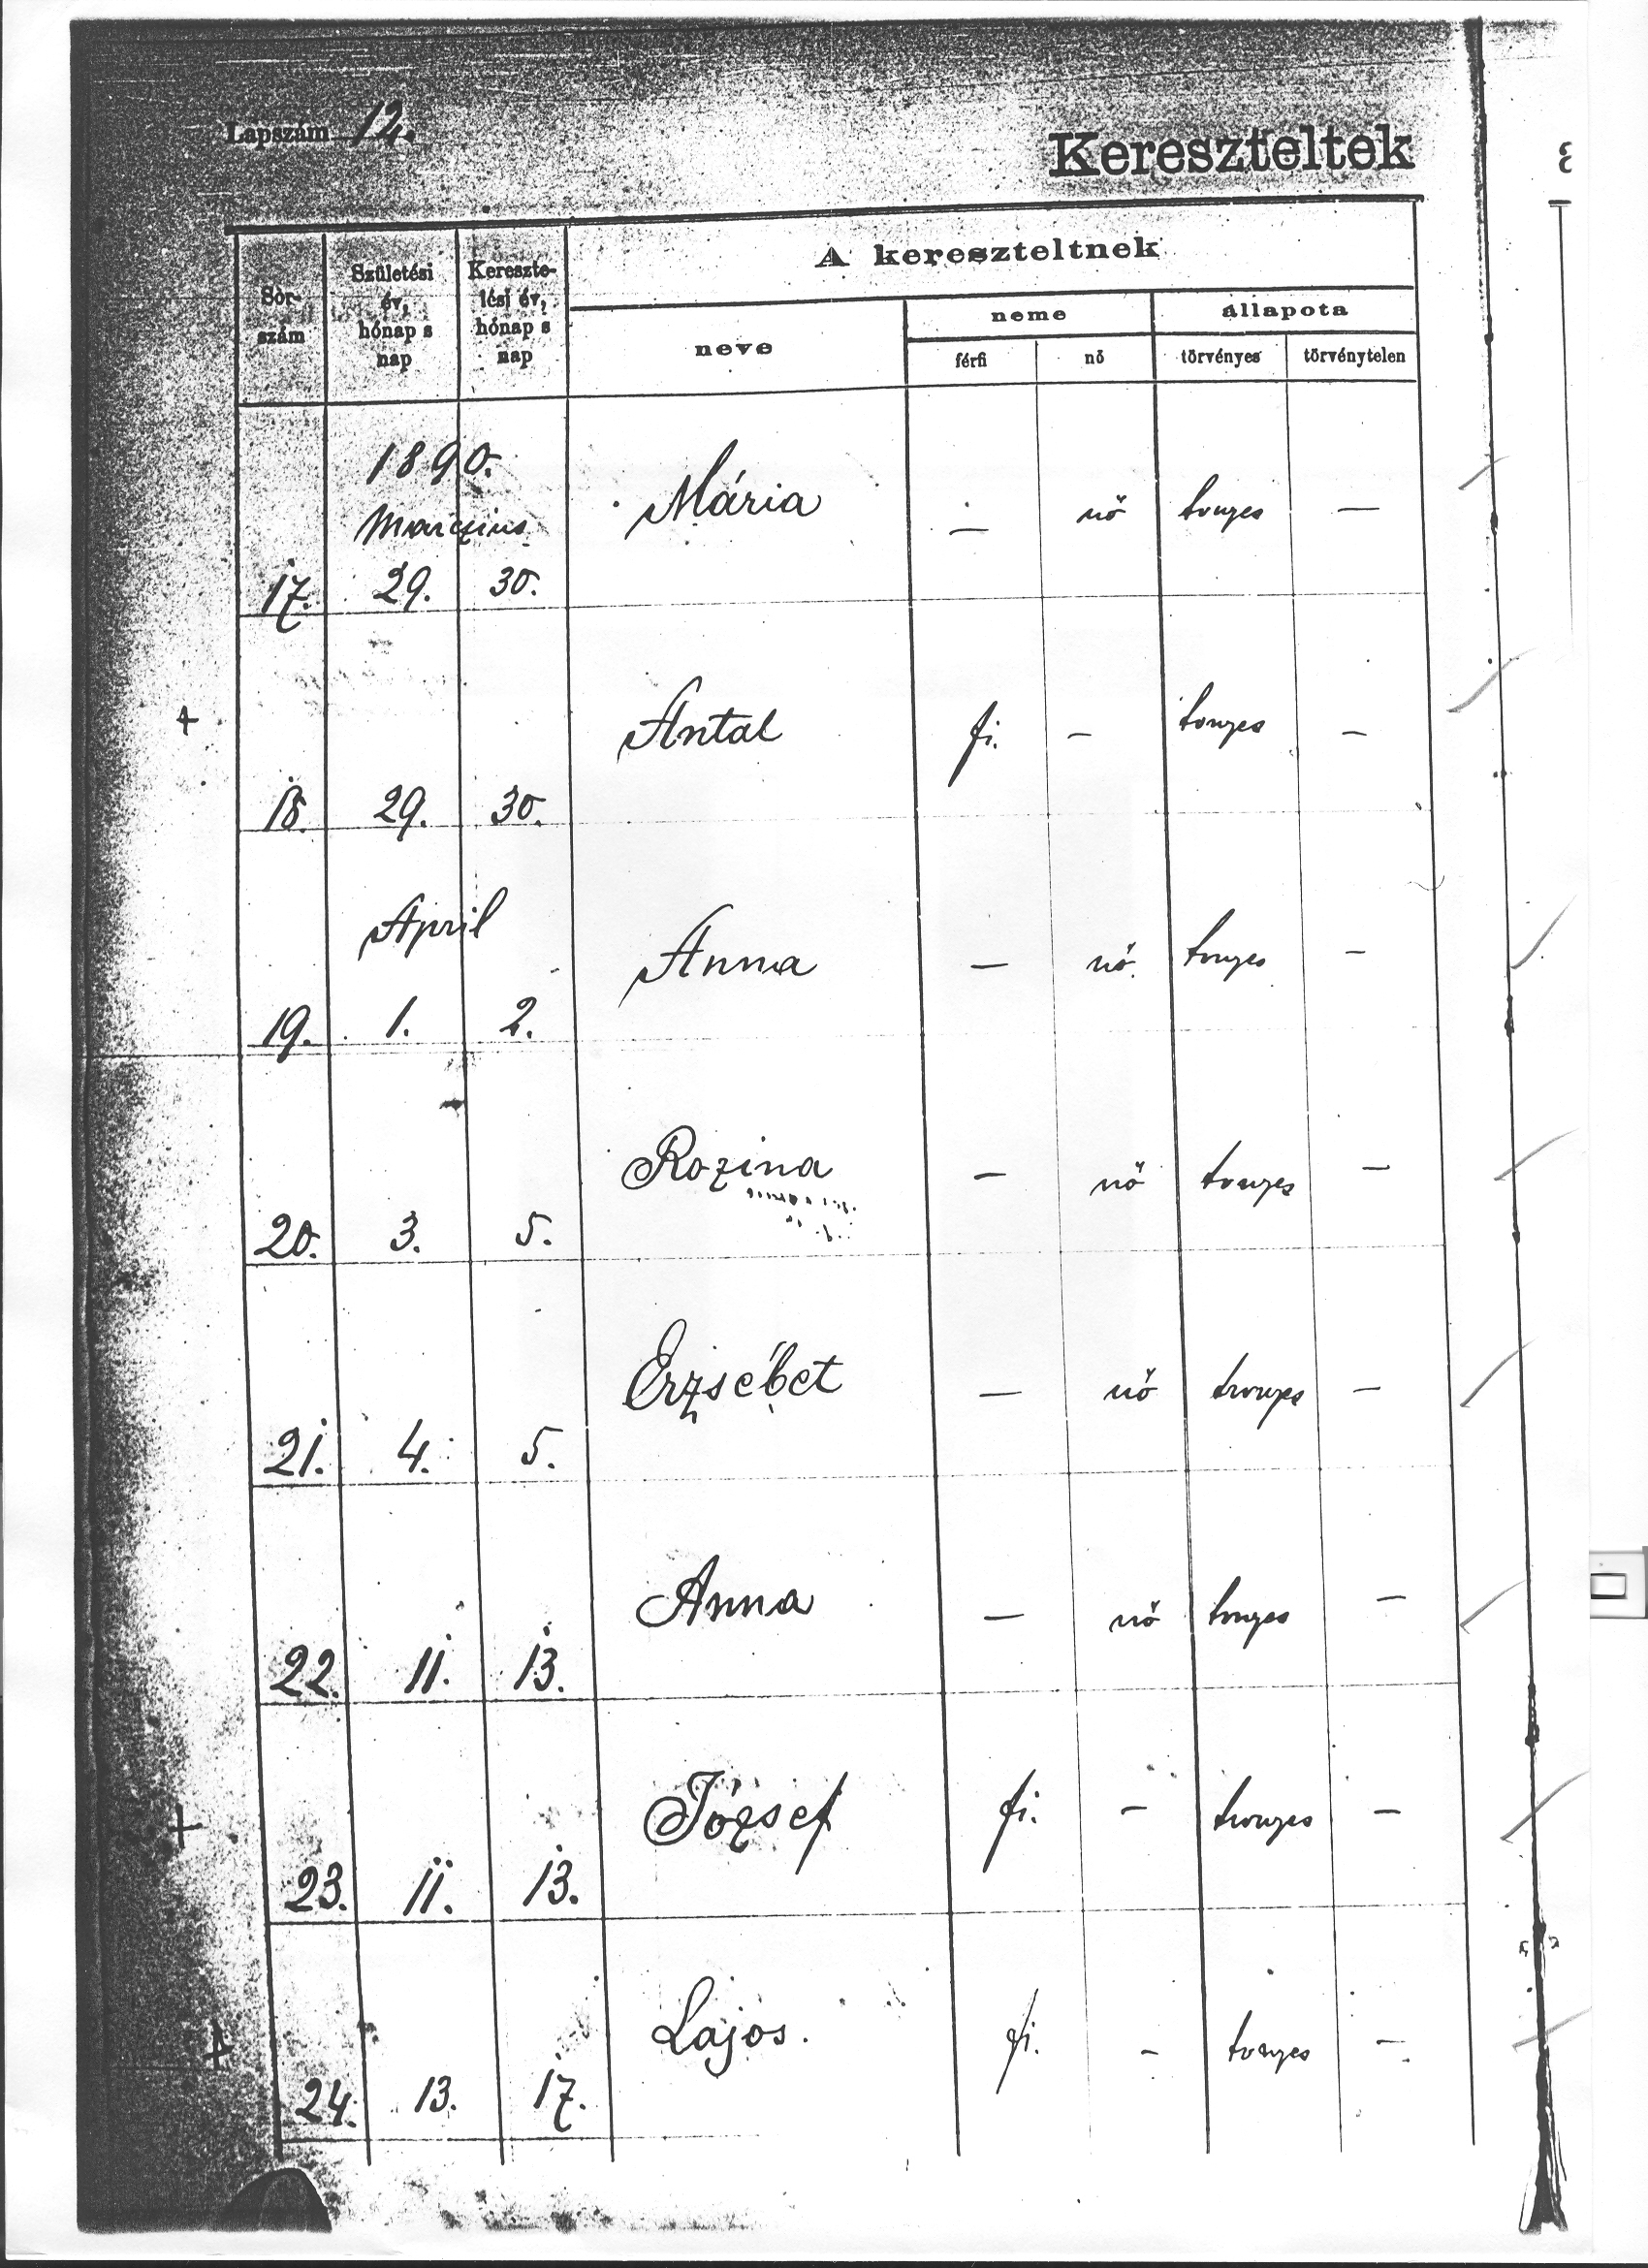 Lapszám 12.
Kereszteltek
Sor-
szám
Születési
év,
hónap s
nap
Kereszte-
lési év,
hónap s
nap
A kereszteltnek
neve
neme
állapota
férfi
nő
törvényes
törvénytelen
1890.
Marczius
17. 29. 30. Mária — nő tvnyes —
18. 29. 30. Antal fi. — tvnyes —
April
19. 1. 2. Anna — nő tvnyes —
20. 3. 5. Rozina — nő tvnyes —
21. 4. 5. Erzsébet — nő tvnyes —
22. 11. 13. Anna — nő tvnyes —
23. 11. 13. József fi. — tvnyes —
24. 13. 17. Lajos. fi. — tvnyes —